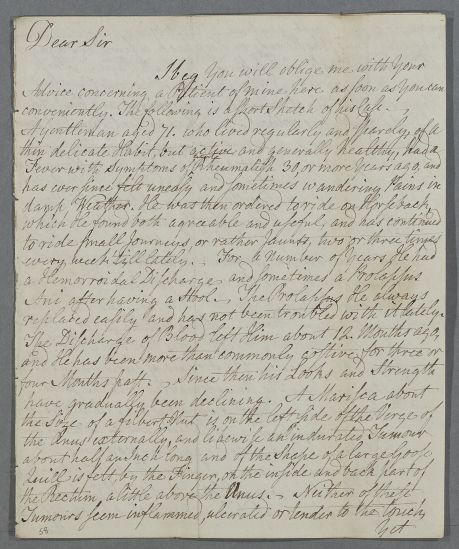 Dear Sir
I beg You will oblige me with Your
Advice concerning a Patient of mine here as soon as You can
conveniently. The following is a short Sketch of his Case.
A gentleman aged 71. who lived regularly and sparely, of a
thin delicate Habit, but active and generally healthy, had a
Fever with Symptoms of Rheumatism 30, or more Years ago, and
has ever since felt uneasy and sometimes wandering Pains in
damp Weather. He was then ordered to ride on Horseback,
which He found both agreeable and useful, and has continued
to ride small Journeys, or rather Jaunts, two or three times
every week till lately. For a number of Years He had
a Hemorroidal Discharge and sometimes a Prolapsus
Ani after having a Stool. The Prolapsus He always
replaced easily and has not been troubled with it lately.
The Discharge of Blood left Him about 12 Months ago,
and He has been more than commonly costive for three or
four Months past. Since then his Looks and Strength
have gradually been declining. A Marisca about
the Size of a filbert Nut is on the left side of the Verge of
the Anus externally, and likewise an indurated Tumour
about half an Inch long and of the Shape of a large Goose
Quill is felt, by the Finger, on the inside and back part of
the Rectum, a little above the Anus. Neither of these
Tumours seem inflammed, ulcerated or tender to the touch,
Yet
58